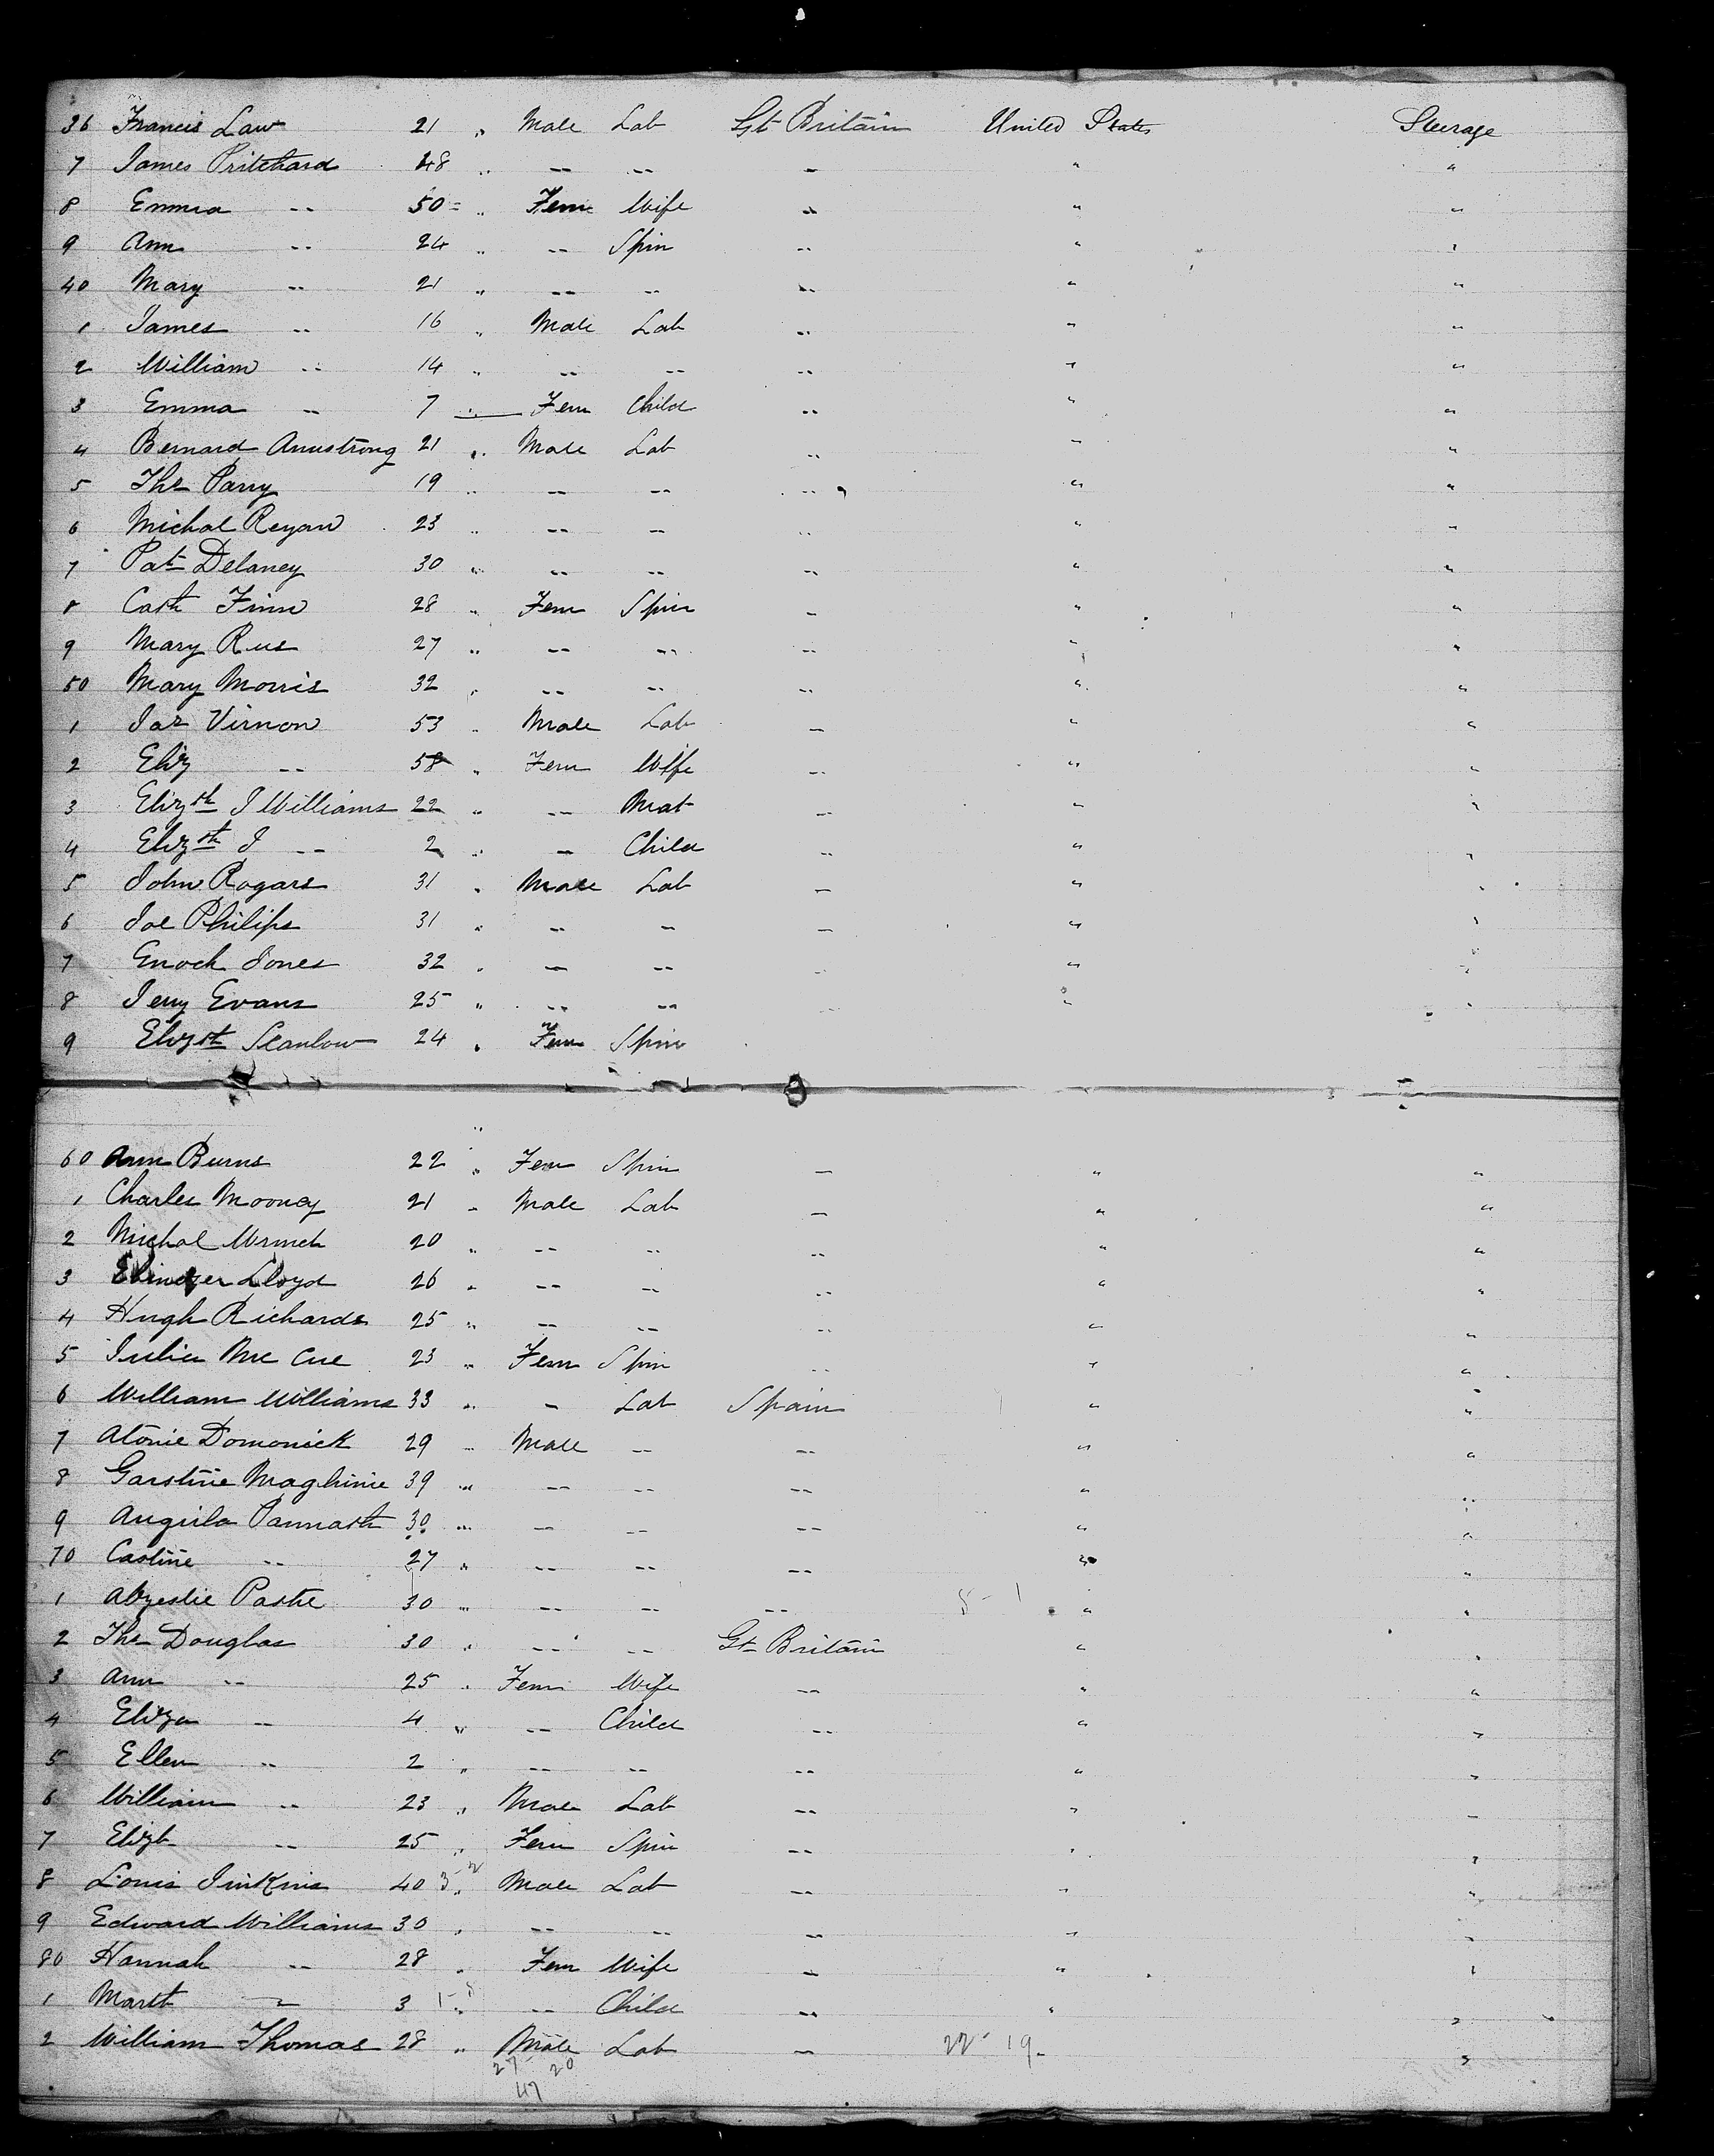 36 Francis Law 21 " Male Lab Gt Britain United States Steerage
7 James Pritchard 48 " -- -- -- " "
8 Emma -- 50 " Fem Wife -- " "
9 Ann -- 24 " -- Spin -- " "
40 Mary -- 21 " -- -- -- " "
1 James -- 16 " Male Lab -- " "
2 William -- 14 " -- -- -- " "
3 Emma -- 7 " Fem Child -- " "
4 Bernard Armstrong 21 " Male Lab -- " "
5 Thos Parry 19 " -- -- -- " "
6 Michal Reyan 23 " -- -- -- " "
7 Pat Delaney 30 " -- -- -- " "
8 Cath Finn 28 " Fem Spin -- " "
9 Mary Rus 27 " -- -- -- " "
50 Mary Morris 32 " -- -- -- " "
1 Jas Virnon 53 " Male Lab -- " "
2 Eliz -- 58 " Fem Wife -- " "
3 Elizth J Williams 22 " -- Mat -- " "
4 Elizth J -- 2 " -- Child -- " "
5 John Rogars 31 " Male Lab -- " "
6 Joe Philips 31 " -- -- -- " "
7 Enoch Jones 32 " -- -- -- " "
8 Jerry Evans 25 " -- -- " "
9 Elizth Scanlow 24 " Fem Spin
60 Ann Burns 22 " Fem Spin -- " "
1 Charles Mooney 21 " Male Lab -- " "
2 Michal 20 " -- -- -- " "
3 Ebinezer Lloyd 26 " -- -- -- " "
4 Hugh Richards 25 " -- -- -- " "
5 Julia Mc Cue 23 " Fem Spin -- " "
6 William Williams 33 " -- Lab Spain " "
7 Atonie Domonick 29 " Male -- -- " "
8 Garstine Maghinie 39 " -- -- -- " "
9 Augula Pannath 30 " -- -- -- " "
70 Castine -- 27 " -- -- -- " "
1 Pastre 30 " -- -- -- 8 - 1 " "
2 Thos Douglas 30 " -- -- Gt Britain " "
3 Ann -- 25 " Fem Wife -- " "
4 Eliza -- 4 " -- Child -- " "
5 Ellen -- 2 " -- -- -- " "
6 William -- 23 " Male Lab -- " "
7 Elizb -- 25 " Fem Spin -- " "
8 Louis Jinkins 40 " Male Lab -- " "
9 Edward Williams 30 " -- -- -- " "
80 Hannah -- 28 " Fem Wife -- " "
1 Mart -- 3 " -- Child -- " "
2 William Thomas 28 " Male Lab -- 22 - 19 "
27 20
47